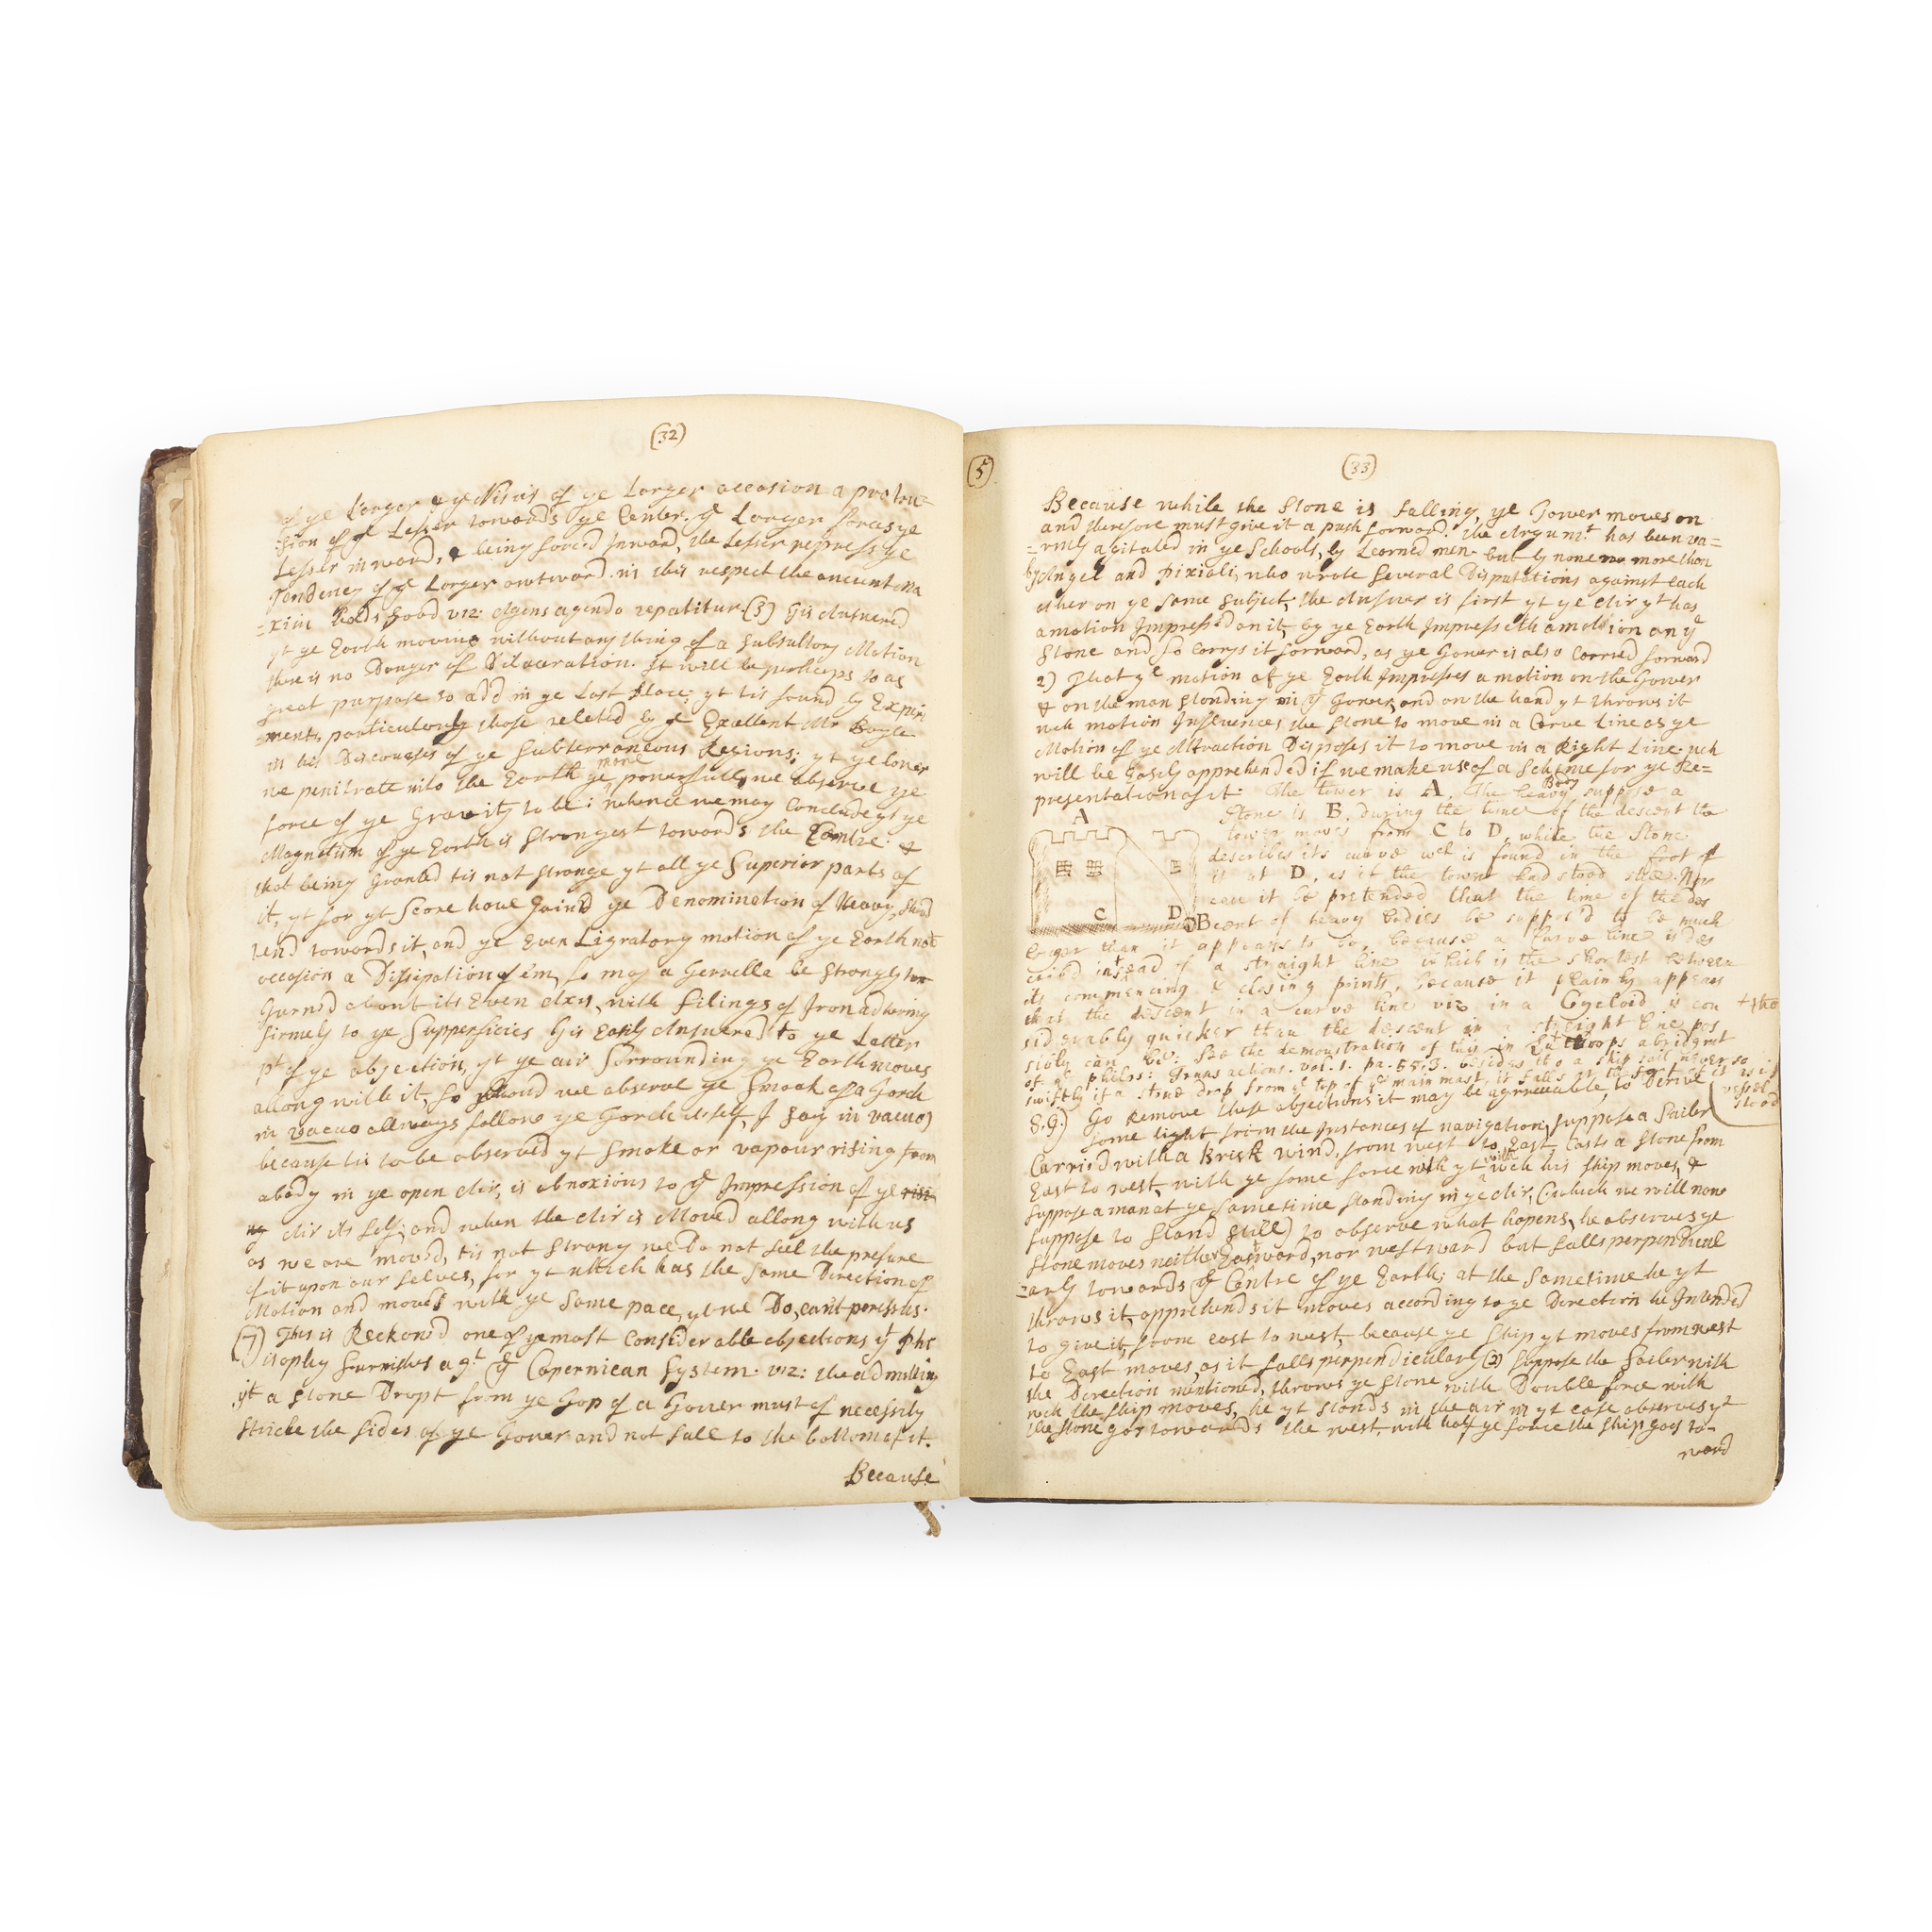 (32)
of ye Larger & ye Nisus of ye Larger occasion a protru=
=sion of ye Lesser towards ye Center. ye Larger forces ye
Lesser inward, & being forced Inward, the Lesser repress ye
Tendency of ye Larger outward. in this respect the ancient Ma
=xim holds good viz: Agens agendo repatitur. (3) Tis Answered
yt ye Earth moving without any thing of a Subsultory Motion
there is no Danger of Dilaceration. It will be perhaps to as
great purpose to add in ye Last place; yt tis found by Expiri
=ments, particularly those related by ye Exellent Mr Boyle
in his Discourses of ye Subterraneous Regions; yt ye lower
we penitrate into the Earth ye more powerfull, we observe ye
force of ye Gravity to be: whence we may Conclude yt ye
Magnetism of ye Earth is Strongest towards the Centre: &
that being Granted tis not strange yt all ye Superior parts of
it, yt for yt Score have Gain'd ye Denomination of Heavy, should
tend towards it, and ye Even Ligratory motion of ye Earth not
occasion a Dissipation of em, so may a Gerrella be Strongly
Turned about its Even Axis, with filings of Iron adhering
firmely to ye Supperficies Tis Easily Answered to ye Latter
pt of ye objection, yt ye air Sorrounding ye Earth moves
allong with it, so should we observe ye Smoak of a Torch
in vacuo allways follow ye Torch it self, I say in vacuo)
because tis to be observed yt Smoke or vapour rising from
a body in ye open Air, is obnoxious to ye Impression of ye risi
ng Air its self; and when the Air is Moved allong with us
as we are moved, tis not Strang we Do not feel the presure
of it upon our selves, for yt which has the same Direction of
Motion and moves with ye Same pace, yt we Do, can't press us.
(7) This is Reckoned one of ye most Considerable objections yt Phi
losophy furnishes agt ye Copernican System. viz: the admitting
yt a stone Dropt from ye Top of a Tower must of necessity
Stricke the sides of ye Tower and not fall to the bottom of it.
Because
(5)
(33)
Because while the Stone is falling, ye Tower moves on
and therefore must give it a push forward. The Argumt has been va=
=riously agitated in ye Schools, by Learned men but by none no more than
by Angel and Pixioli, who wrote several Disputations against each
other on ye same Subject; the Answer is first yt ye Air yt has
a motion Impress'd on it, by ye Earth Impresseth a motion on ye
Stone and so Carrys it forward, as ye Tower is also Carried forward
2) That ye motion of ye Earth Impresses a motion on the Tower
& on the man Standing in ye Tower, and on the hand yt throws it
wch motion Influences the Stone to move in a Curve Line as ye
Motion of ye Attraction Disposes it to move in a Right Line: wch
will be Easily apprehended if we make use of a Scheme for ye Re=
presentation of it. The tower is A. The heavy Body suppose a
Stone is B, during the time of the descent the
tower moves from C to D, while the Stone
describes its curve wch is found in the foot of
it at D, as if the tower had stood still. Nor
can it be pretended that the time of the des
cent of heavy bodies be suppos'd to be much
A
C
D
B
longer than it appears to be, because a Curve line is des
cribd instead of a straight line which is the shortest between
its commencing & closing points, because it plainly appears
that the descent in a curve line viz in a Cycloid is con
siderably quicker than the descent in a straight line pos
sibly can be: See the demonstration of this in abridgmt
of ye philos: Transactions. vol. 1. pa. 553. besides tho a ship sail never so
swiftly if a stone drop from ye top of ye main mast, it falls at the foot of it as if
+ the
vessel
stood
8.9.) To Remove these objections it may be agreeable, to Derive
some light from the Instances of navigation, suppose a Sailer
Carried with a Brisk wind, from west to East, Casts a Stone from
East to west, with ye same force with yt with wch his Ship moves, &
Suppose a man at ye same time standing in ye Air, (which we will now
suppose to Stand still) to observe what hapens, he observes ye
Stone moves neither Eastward, nor westward but falls perpendicul
=arly towards ye Centre of ye Earth; at the same time he yt
throws it, apprehends it moves according to ye Direction he Intended
to give it, from east to west, because ye Ship yt moves from west
to East moves, as it falls perpendicularly (2) Suppose the Sailer with
the Direction mentioned, throws ye Stone with Double force with
wch the Ship moves, he yt stands in the air in yt case observes yt
the Stone goes towards the west, with half ye force the Ship goes to-
ward